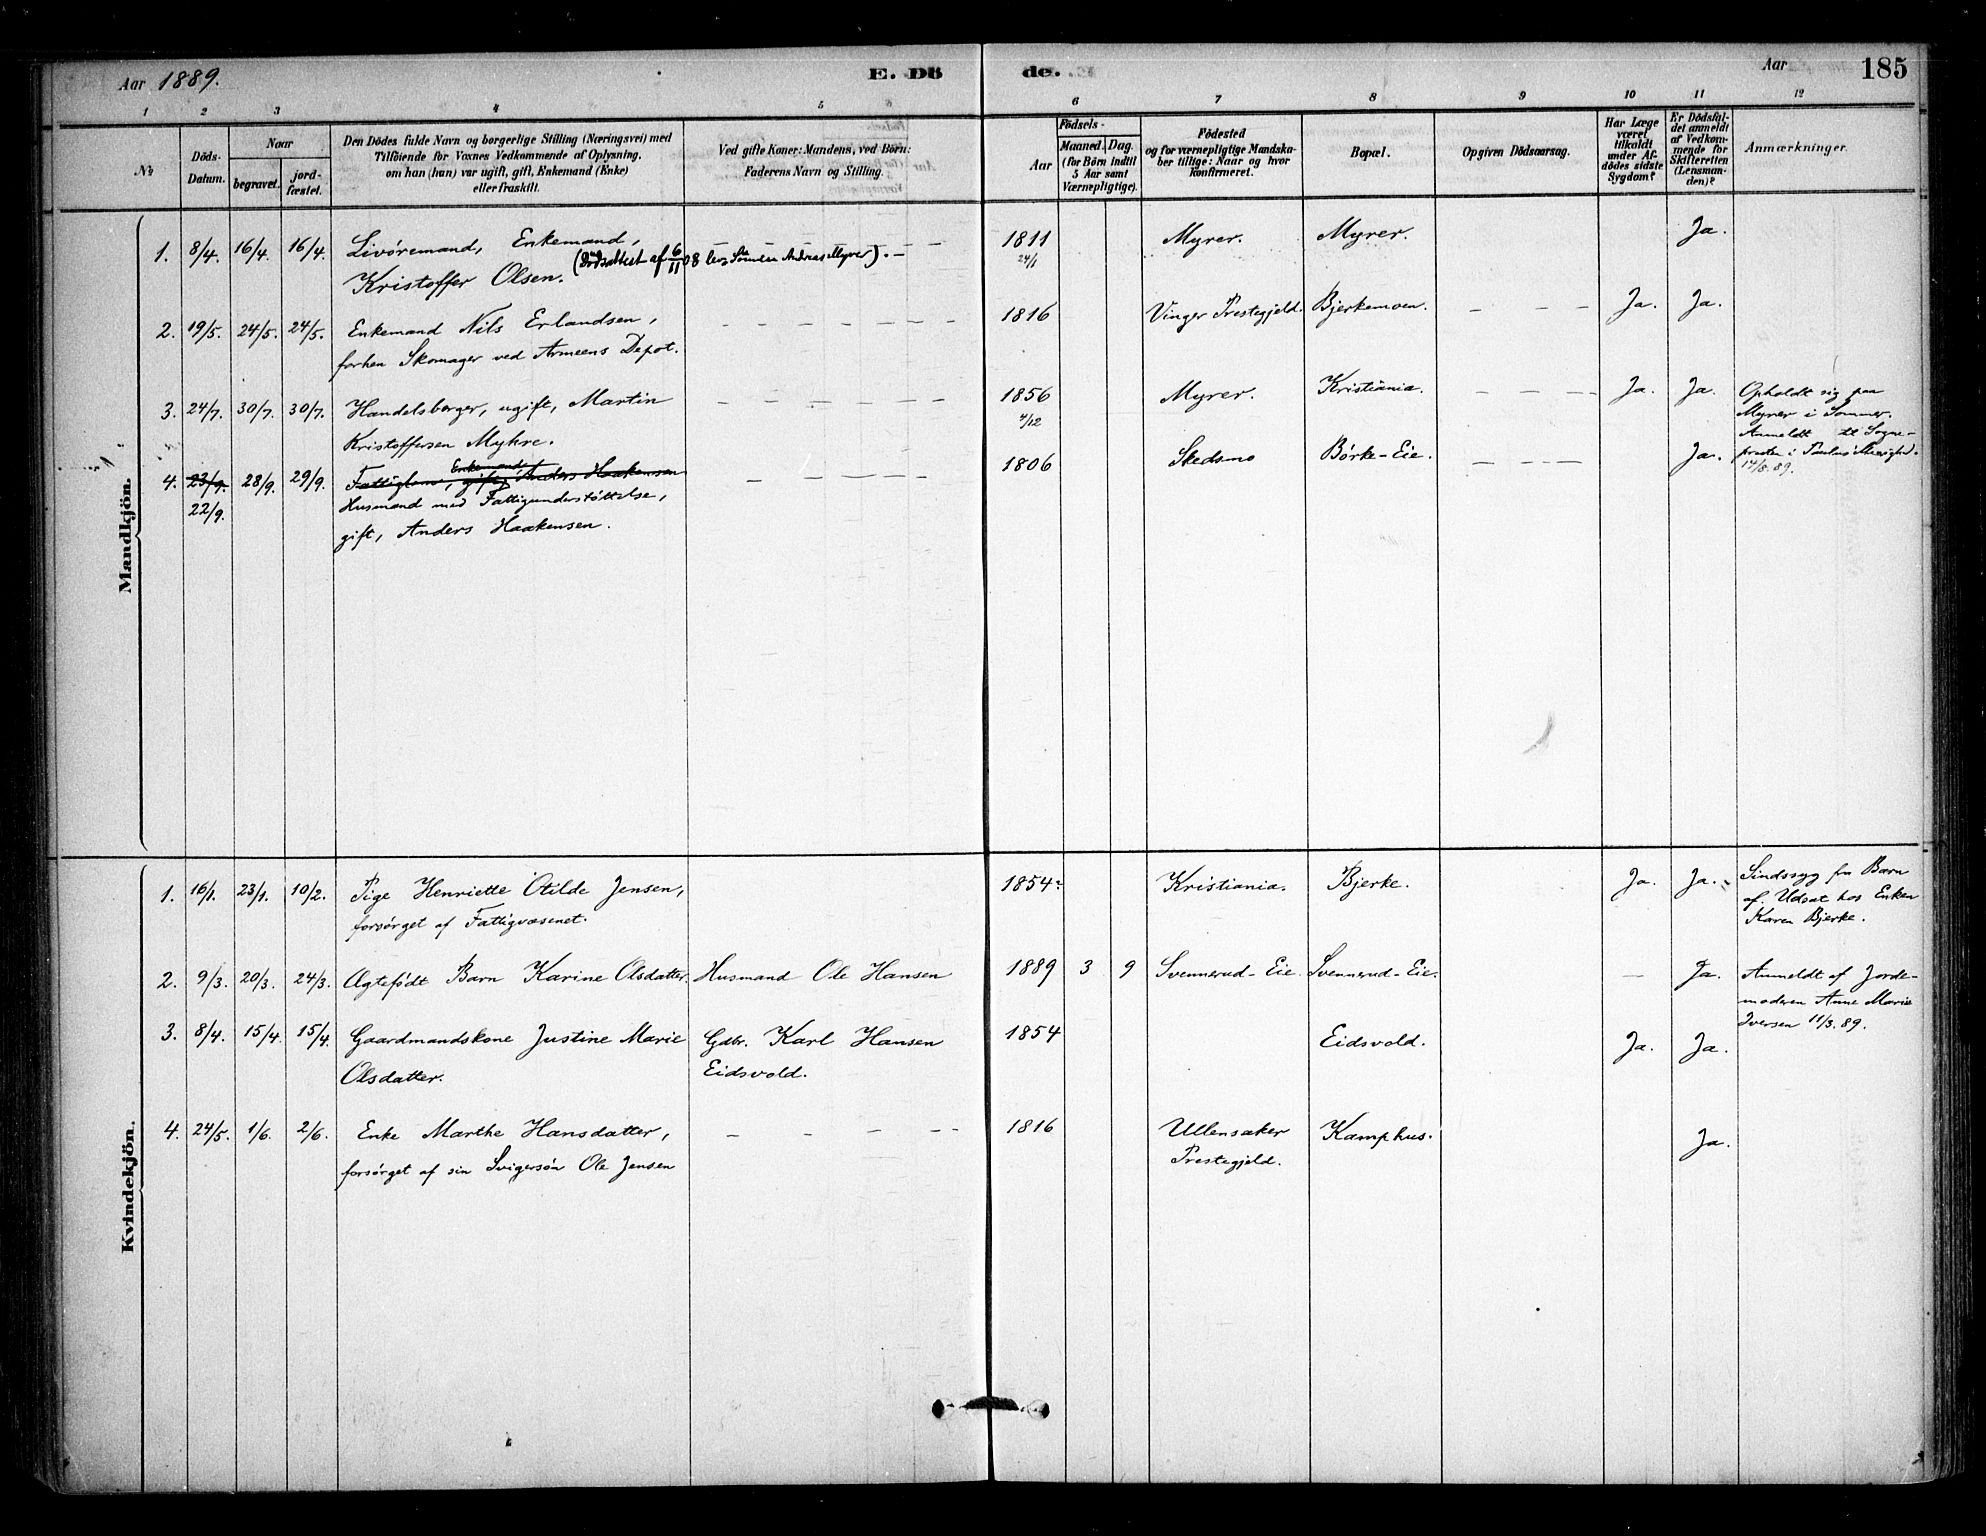 Aar 1889.
E. Dö
de.
Aar
185
1 2 3 4 5 6 7 8 9 10 11 12
No
Döds-
Datum.
Naar
begravet.
jord-
fæstet.
Den Dödes fulde Navn og borgerlige Stilling (Næringsvei) med
Tilföiende for Voxnes Vedkommende af Oplysning,
om han (hun) var ugift, gift, Enkemand (Enke)
eller fraskilt.
Ved gifte Koner: Mandens, ved Börn:
Faderens Navn og Stilling.
Födsels-
Aar
Maaned. Dag.
(for Börn indtil
5 Aar samt
Værnepligtige).
Födested
og for værnepligtige Mandska-
ber tillige: Naar og hvor
konfirmeret.
Bopæl.
Opgiven Dödsaarsag.
Har Læge
været
tilkaldt
under Af-
dödes sidste
Sygdom?
Er Dödsfal-
det anmeldt
af Vedkom-
mende for
Skifteretten
(Lensman-
den)?
Anmærkninger.
Mandkjön.
1. 8/4. 16/4. 16/4. Livøremand, Enkemand, 1811 Myrer. Myrer. Ja.
(Dødsattest af 6/11 08 Andreas Myrer). 24/1
Kristoffer Olsen.
2. 19/5. 24/5. 24/5. Enkemand Nils Erlandsen, 1816 Vinger Prestegjeld. Bjerkemoen. Ja. Ja.
forhen Skomager ved Armeens Depot.
3. 24/7. 30/7. 30/7. Handelsborger, ugift, Martin 1856 Myrer. Kristiania. Ja. Ja. Opholdt sig paa
Kristoffersen Myhre. 4/12 Myrer i Sommer.
Anmeldt til Sogne-
presten i Menighed.
14/8. 89.
4. 23/9. 28/9. 29/9. Fattiglem, gift, Enkemand Anders Haakensen 1806 Skedsmo Børke-Eie. Ja.
22/9. Husmand med Fattigunderstøttelse,
gift, Anders Haakensen.
Kvindekjön.
1. 16/1. 23/1. 10/2. Pige Henriette Otilde Jensen, 1854 Kristiania. Bjerke. Ja. Ja. Sindssyg fra Barn
forsørget af Fattigvæsenet. af. Udsat hos Enken
Karen Bjerke.
2. 9/3. 20/3. 24/3. Ægtefødt Barn Karine Olsdatter. Husmand Ole Hansen 1889 3 9 Svennerud-Eie. Svennerud-Eie. Ja. Anmeldt af Jorde-
moderen Anne Marie
Iversen 11/3. 89.
3. 8/4. 15/4. 15/4. Gaardmandskone Justine Marie Gdbr. Karl Hansen 1854 Eidsvold. Ja. Ja.
Olsdatter. Eidsvold.
4. 24/5. 1/6. 2/6. Enke Marthe Hansdatter, 1816 Ullensaker Kamphus. Ja.
forsørget af sin Svigersøn Ole Jensen Prestegjeld.